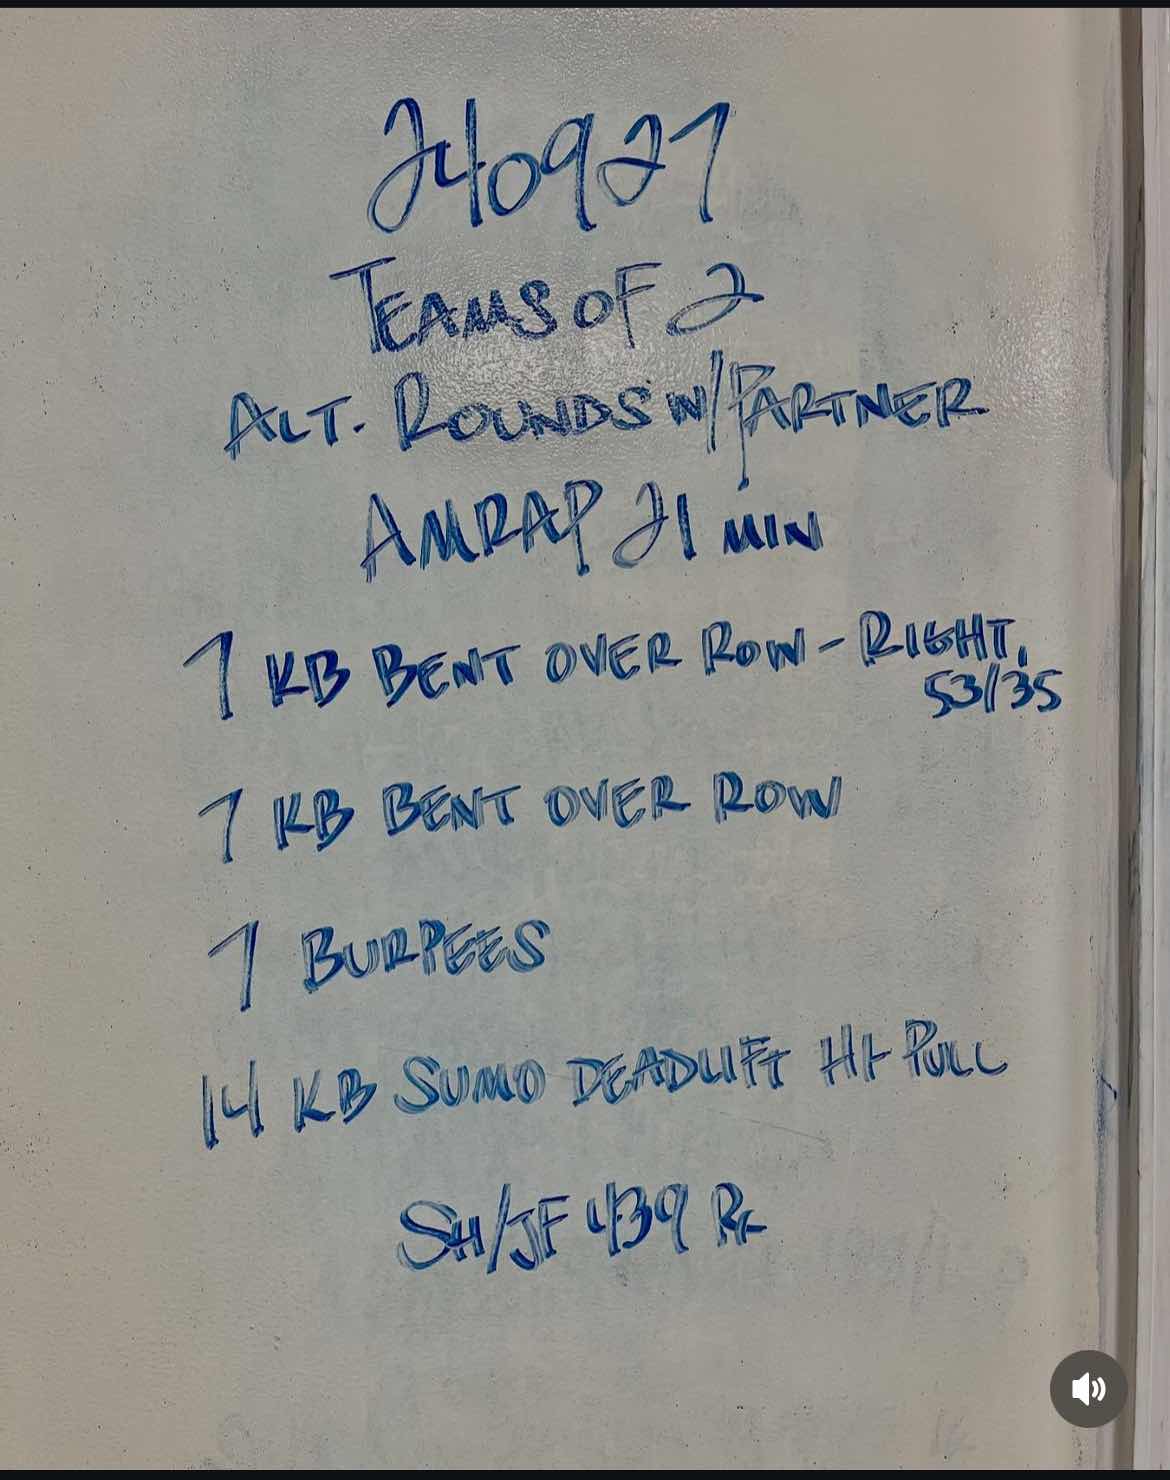 240927
TEAMS OF 2
ALT. ROUNDS W/PARTNER
AMRAP 21 MIN
7 KB BENT OVER ROW - RIGHT,
53/35
7 KB BENT OVER ROW
7 BURPEES
14 KB SUMO DEADLIFT HI PULL
SH/JF 439 Rx